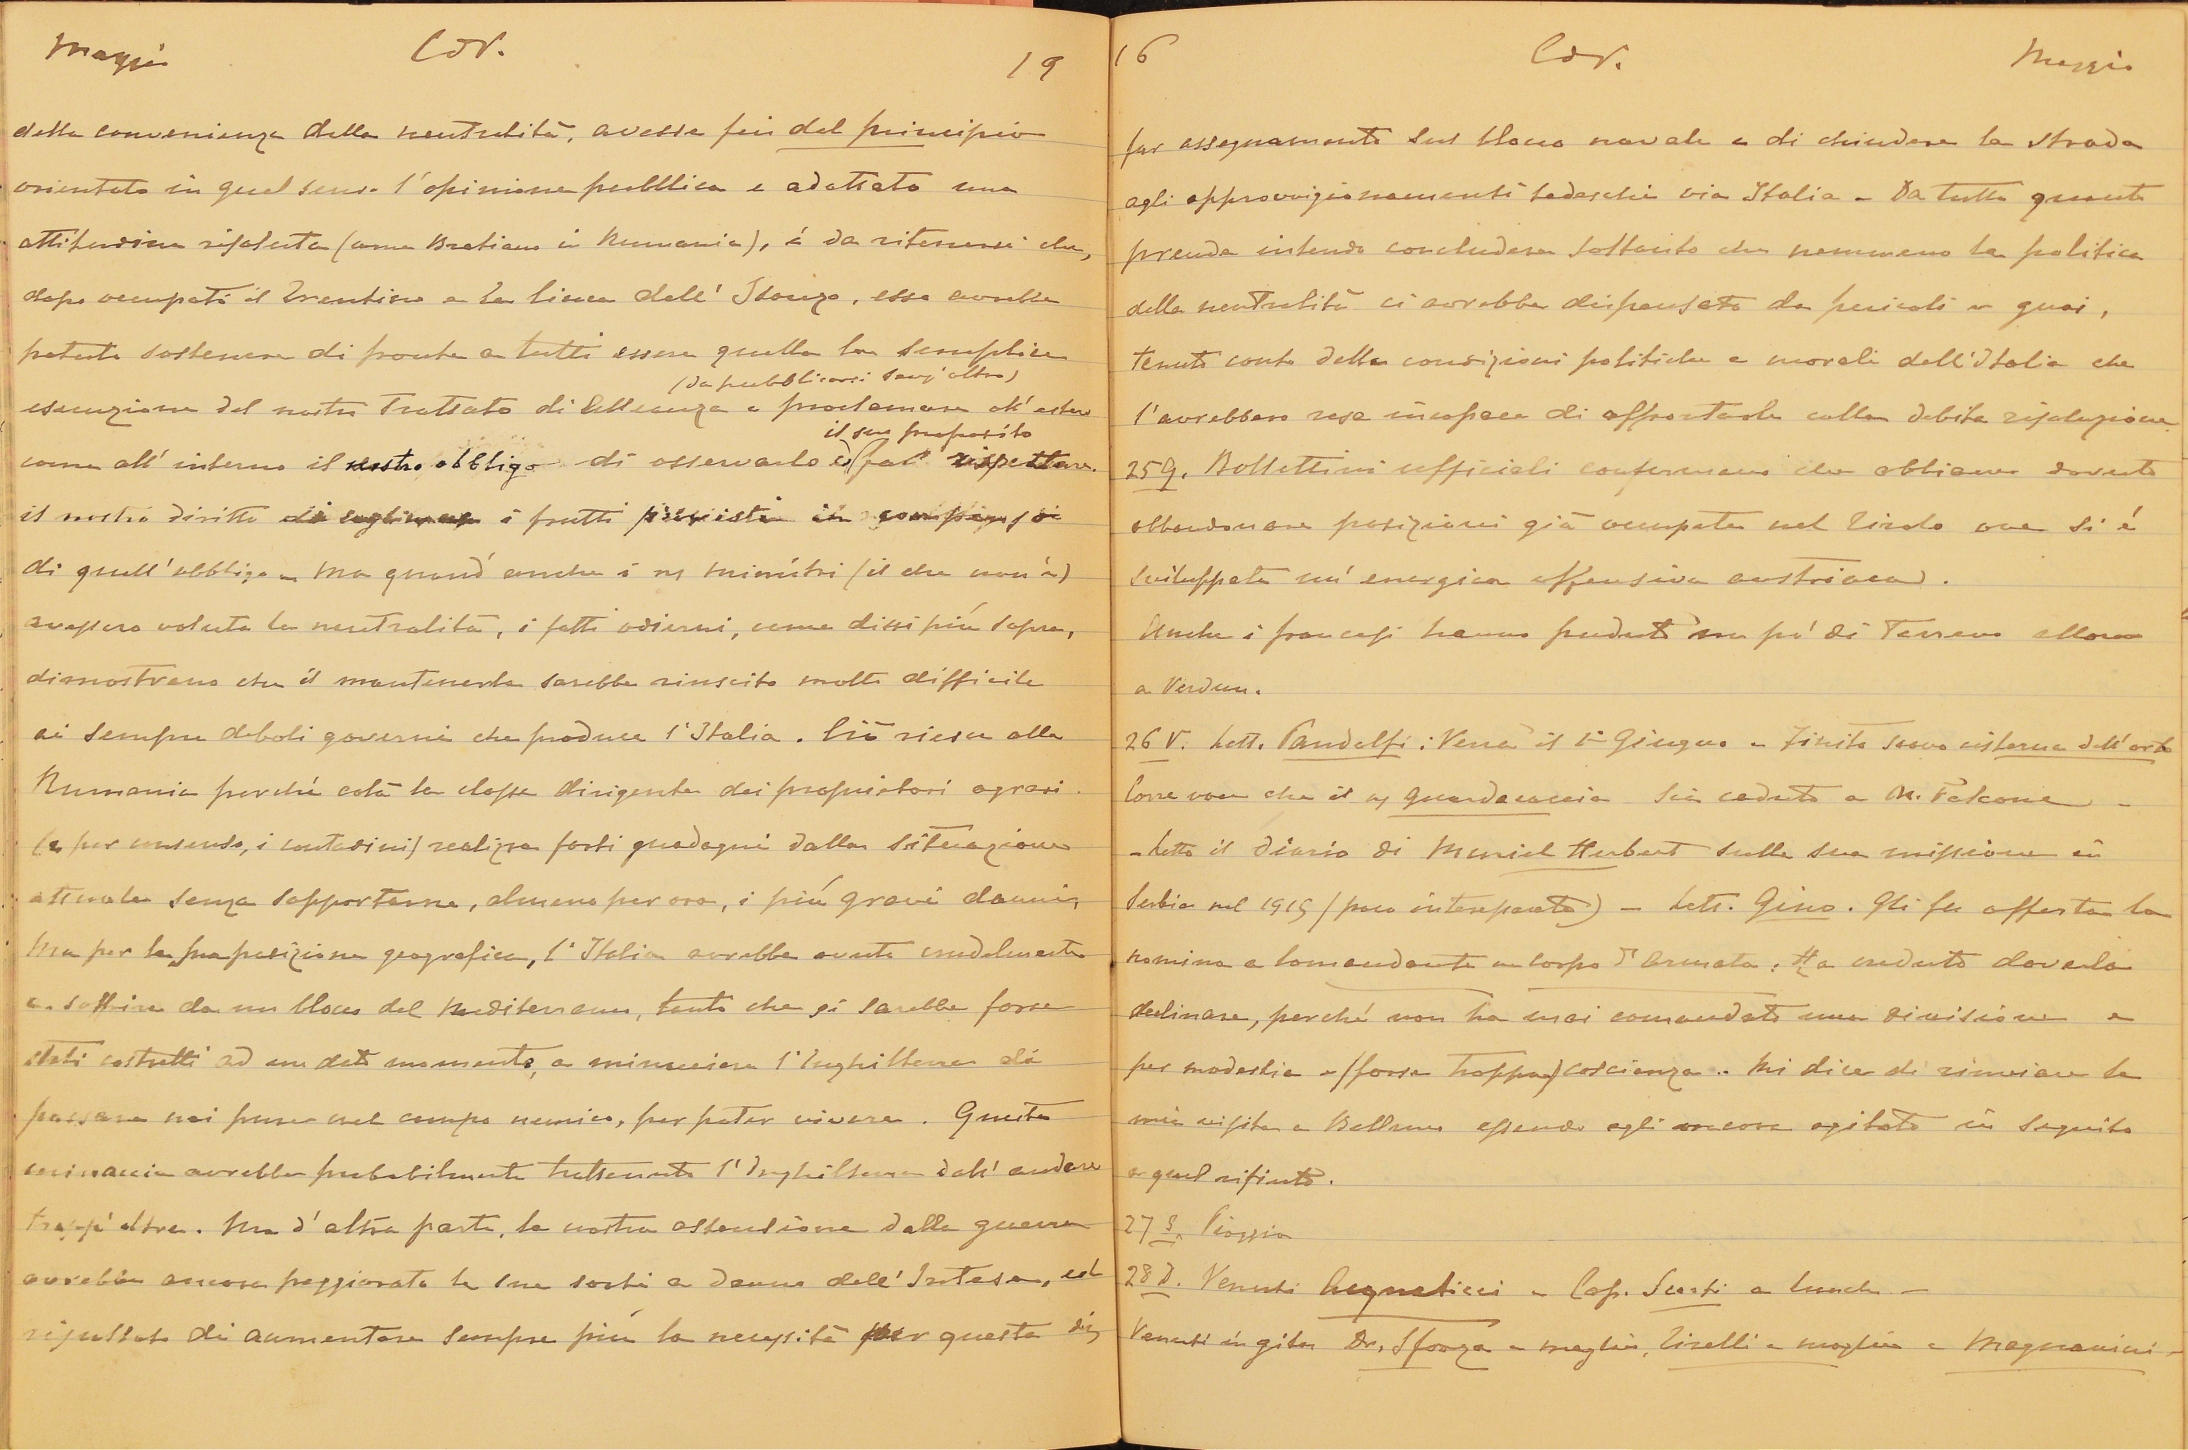 Maggio CdV. 19
della convenienza della neutralità, avesse fin dal principio
orientato in quel senso l'opinione pubblica e adottato una
attitudine risoluta (come Bratiano in Rumania), è da ritenersi che,
dopo occupati il Trentino e la linea dell'Isonzo, esso avrebbe
potuto sostenere di fronte a tutti essere quella la semplice
(da pubblicarsi senz'altro)
esecuzione del nostro Trattato di Alleanza e proclamare all'estero
il suo proposito
come all'interno il nostro obbligo di osservarlo e far rispettare
il nostro diritto di i frutti previsti in
di quell'obbligo - Ma quand'anche i ns Ministri (il che non è)
avessero voluta la neutralità, i fatti odierni, come dissi più sopra,
dimostrano che il mantenerla sarebbe riuscito molto difficile
ai sempre deboli governi che produce l'Italia. Ciò riesce alla
Rumania perché colà la classe dirigente dei proprietari agrari
(e per consenso, i contadini) realizza forti guadagni dalla situazione
attuale senza sopportarne, almeno per ora, i più gravi danni,
Ma per la sua posizione geografica, l'Italia avrebbe avuto crudelmente
a soffrire da un blocco del Mediterraneo, tanto che si sarebbe forse
stati costretti ad un dato momento, a minacciare l'Inghilterra di
passare noi pure nel campo nemico, per poter vivere. Questa
minaccia avrebbe probabilmente trattenuto l'Inghilterra dall'andare
tropp'oltre. Ma d'altra parte, la nostra astensione dalla guerra
avrebbe ancora peggiorato le sue sorti a danno dell'Intesa, col
risultato di aumentare sempre più la necessità per questa di
16 CdV. Maggio
far assegnamento sul blocco navale e di chiudere la strada
agli approvvigionamenti tedeschi via Italia - Da tutto quanto
prende intendo concludere soltanto che nemmeno la politica
della neutralità ci avrebbe dispensato da pericoli e guai,
tenuto conto delle condizioni politiche e morali dell'Italia che
l'avrebbero resa incapace di affrontarle colla debita risoluzione.
25 G. Bollettini ufficiali confermano che abbiamo dovuto
abbandonare posizioni già occupate nel Tirolo ove si è
sviluppata un'energica offensiva austriaca.
Anche i francesi hanno perduto un pò di terreno attorno
a Verdun.
26 V. Lett. Pandolfi: Verrà il 1° Giugno - Finito scavo cisterna dell'orto
Corre voce che il ns guardacaccia sia ceduto a M. Falcone -
- Letto il diario di Muriel Herbert sulla sua missione in
Serbia nel 1915 (poco interessante) - Lett. Gino. Gli fu offerta la
nomina a Comandante un Corpo d'Armata. Ha creduto doverla
declinare, perché non ha mai comandato una divisione e
per modestia e (forse troppa) coscienza. Mi dice di rinviare la
mia visita a Belluno essendo egli ancora agitato in seguito
a quel rifiuto.
27 S. Pioggia
28 D. Venuti e Cap. Scarfi a lunch -
Venuti in gita Dr. Sforza e moglie, Tirelli e moglie e Magnanini -